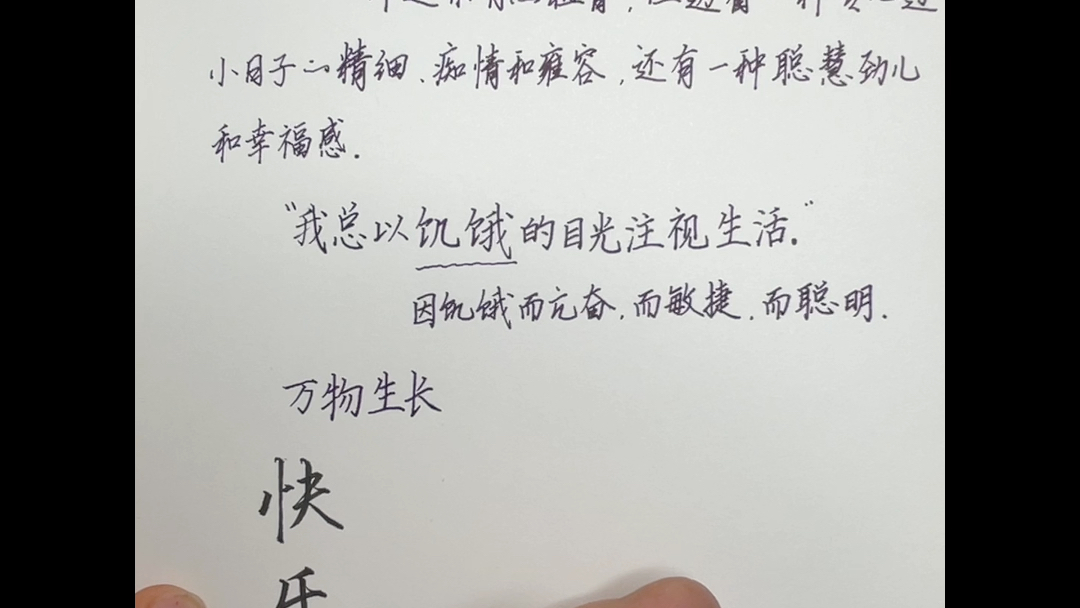 小日子的精细、痴情和雍容，还有一种聪慧劲儿
和幸福感.
“我总以饥饿的目光注视生活.”
因饥饿而亢奋，而敏捷，而聪明.
万物生长
快
乐